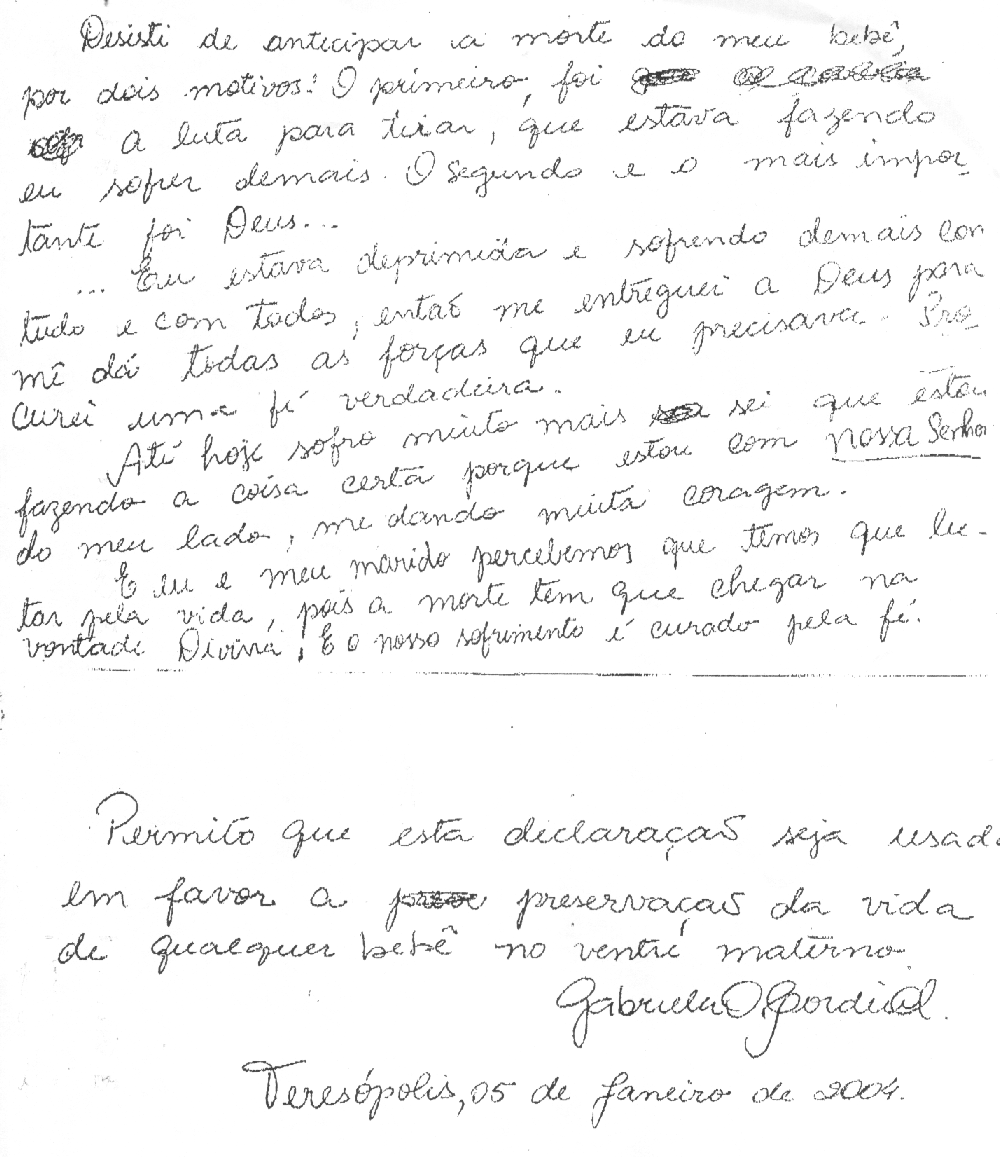 Desisti de antecipar a morte do meu bebê,
por dois motivos: O primeiro, foi
a luta para tirar, que estava fazendo
eu sofrer demais. O segundo e o mais impor_
tante foi Deus...
... Eu estava deprimida e sofrendo demais con
tudo e com todos, entaõ me entreguei a Deus para
mê dá todas as forças que eu precisava. Pro_
curei uma fé verdadeira.
Até hoje sofro muito mais sei que estou
fazendo a coisa certa porque estou com nossa Senho
do meu lado, me dando muita coragem.
E eu e meu marido percebemos que temos que lu-
tar pela vida, pois a morte tem que chegar na
vontade Divina! E o nosso sofrimento é curado pela fé.
Permito que esta declaraçaõ seja usada
em favor a preservaçaõ da vida
de qualquer bebê no ventre materno.
Gabriela O.
Teresópolis, 05 de Janeiro de 2004.